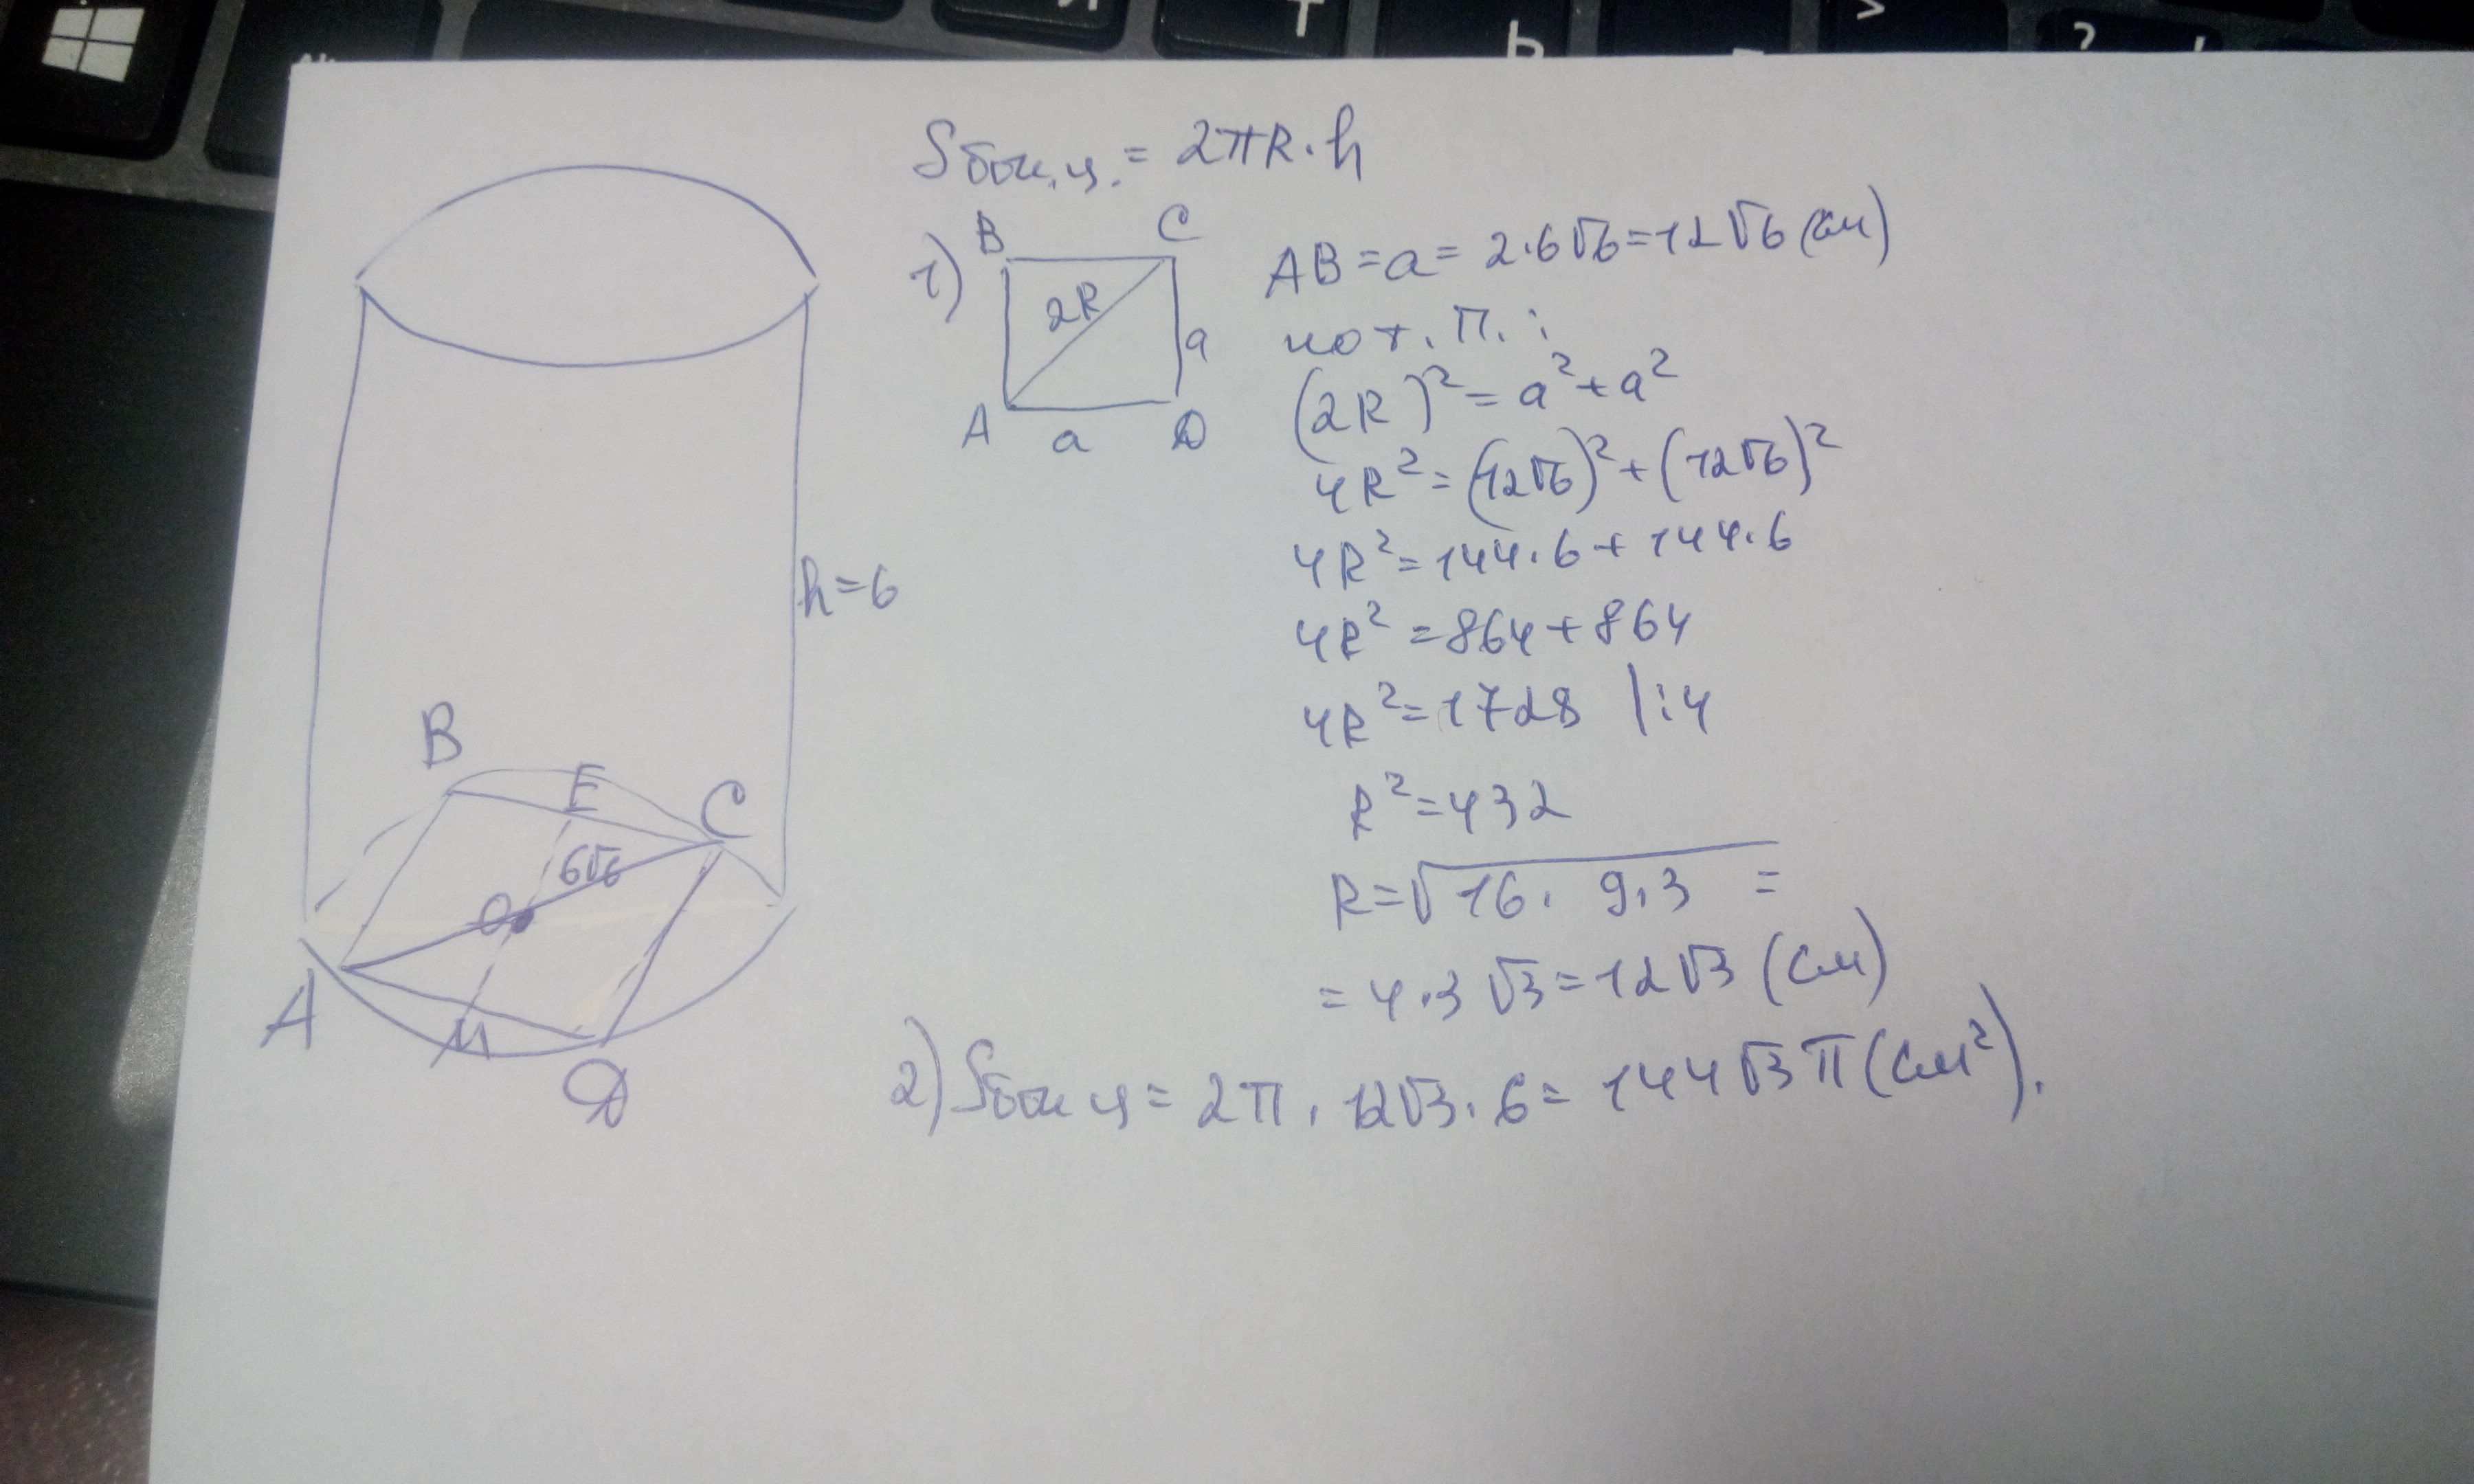 Я Т Ь > ?
Sбок.ц. = 2πR·h
1) B C
2R
a
A a D
AB = a = 2·6√6 = 12√6 (см)
по т. П.:
(2R)² = a² + a²
4R² = (12√6)² + (12√6)²
4R² = 144·6 + 144·6
4R² = 864 + 864
4R² = 1728 |:4
R² = 432
R = √16·9·3 =
= 4·3√3 = 12√3 (см)
2) Sбок ц = 2π·12√3·6 = 144√3π (см²).
h = 6
B
E
C
6√6
O
A
M
D